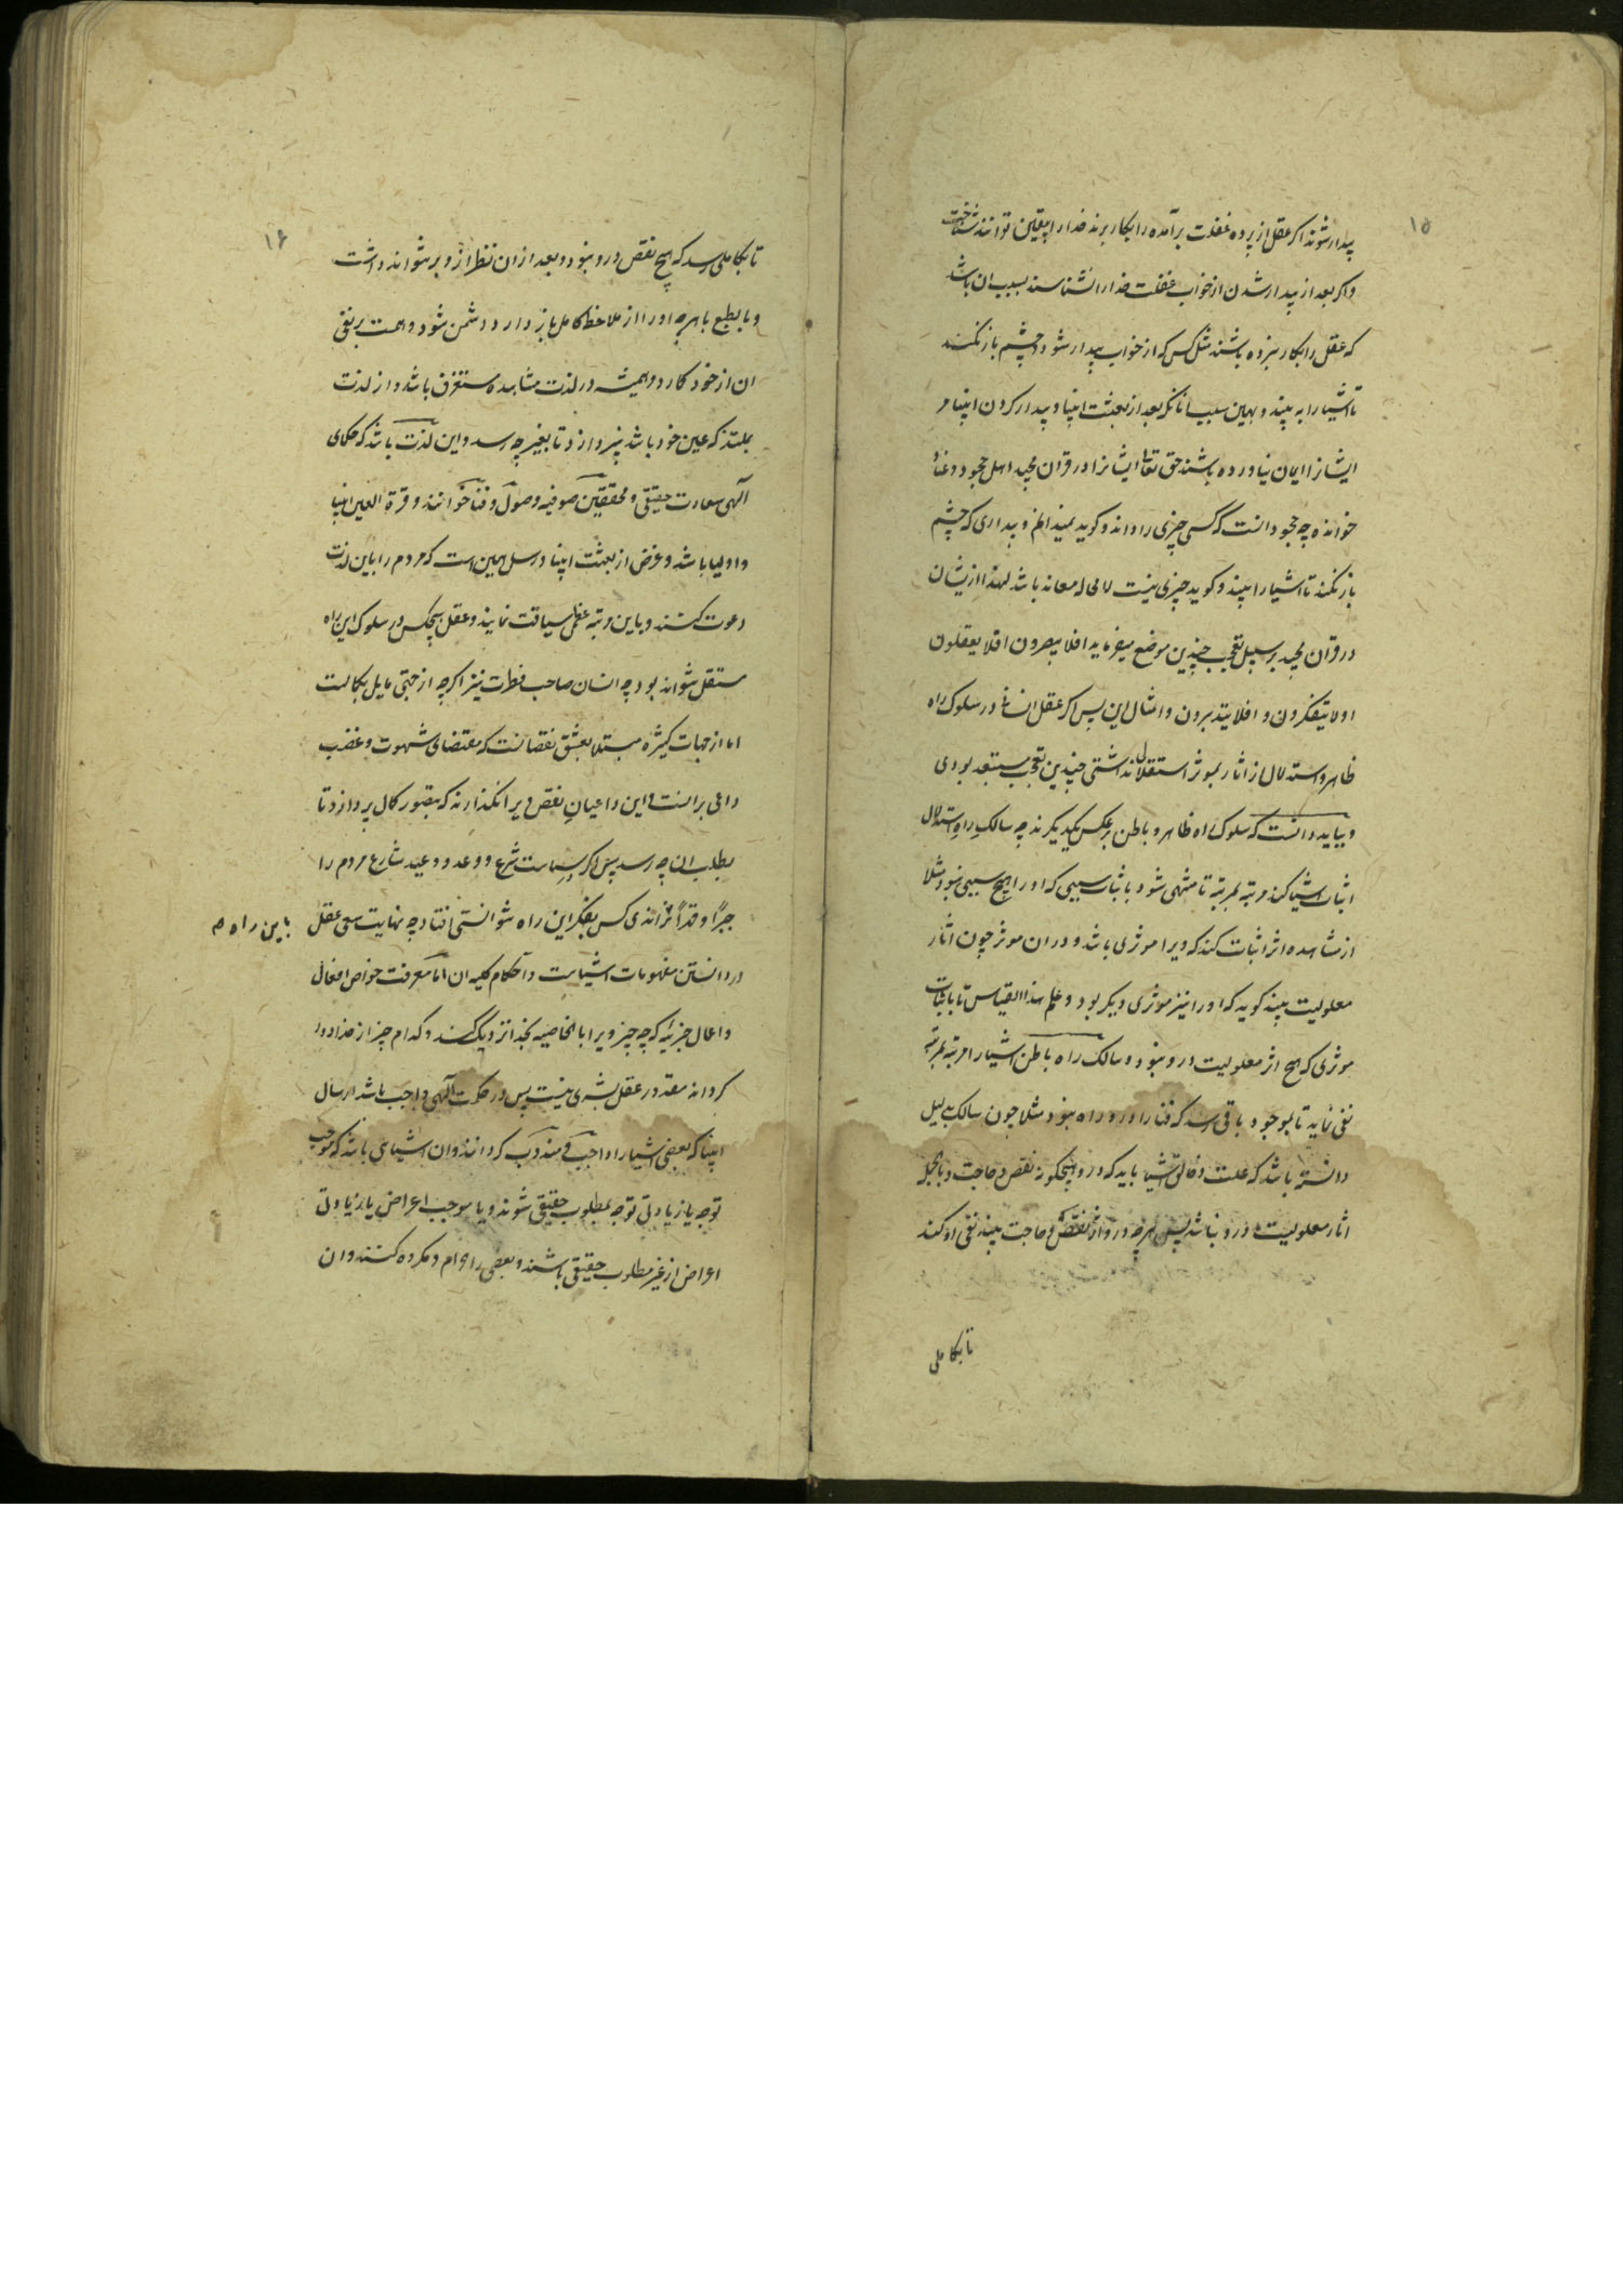 ۱۵
بیدار شوند اکر عقل از پرده غفلت برآمده را بکار برند خدا را بیقین توانند شناخت
و اکر بعد از بیدار شدن از خواب غفلت خدا را نشناسند بسبب ان باشد
که عقل را بکار نبرده باشند مثل کس که از خواب بیدار شود و چشم باز نکند
تا اشیا را به بیند و بهمین سبب انانکه بعد از بعثت انبیا و بیدار کردن انبیا مر
ایشانرا ایمان نیاورده باشند حق تعالی ایشانرا در قران مجید اهل جحود و عناد
خوانده چه جحود انست که کسی چیزی را داند و کوید نمیدانم و بیداری که چشم
باز نکند تا اشیا را بیند و کوید چیزی نیست لامحاله معاند باشد لهذا از یشان
در قران مجید بر سبیل تعجب چندین موضع میفرماید افلا یبصرون افلا یعقلون
اولا یتفکرون و افلا یتدبرون و امثال این پس اکر عقل انسانی در سلوک راه
ظاهر و استدلال از اثار بموثر استقلال نداشتی چندین تعجب مستبعد بودی
و بباید دانست که سلوک راه ظاهر و باطن بر عکس یکدیکرند چه سالک راه استدلال
اثبات اشیا کند مرتبه بمرتبه تا منتهی شود باثبات سببی که او را هیچ سببی نبود مثلا
از مشاهده اثر اثبات کند که ویرا موثری باشد و در ان موثر چون اثار
معلولیت بیند کوید که او را نیز موثری دیکر بود و علی هذا القیاس تا باثبات
موثری که هیچ اثر معلولیت درو نبود و سالک راه باطن اشیا را مرتبه بمرتبه
نفی نماید تا بموجود باقی رسد که فنا را درو راه نبود مثلا چون سالک بدلیل
دانسته باشد که علت و خالق اشیا باید که درو هیچکونه نقص و حاجت و بالجمله
اثار معلولیت درو نباشد پس هرچه درو اثر نقص و حاجت بیند نفی او کند
تا بکاملی
۱۶
تا بکاملی رسد که هیچ نقص درو نبود و بعد از ان نظر از و بر نتواند داشت
و بالطبع با هرچه او را از ملاحظه کامل باز دارد دشمن شود و همت بر نفی
ان از خود کمارد و همیشه در لذت مشاهده مستغرق باشد و از لذت
بملتذ که عین خود باشد نپردازد تا بغیر چه رسد و این لذت باشد که حکمای
الهی سعادت حقیقی و محققین صوفیه وصول و فنا خوانند و قرة العین انبیا
و اولیا باشد و غرض از بعثت انبیا و رسل همین است که مردم را باین لذت
دعوت کنند و باین رتبه عظمی سیاقت نمایند و عقل هیچکس در سلوک این راه
مستقل نتواند بود چه انسان صاحب فطرت نیز اکرچه از جهتی مایل بکمالست
اما از جهات کثیره مبتلا بعشق نقصانست که مقتضای شهوت و غضب
داعی بر انست و این داعیان نقص ویرا نکذارند که بتصور کمال پردازد تا
بطلب ان چه رسد پس اکر سیاست شرع و وعد و وعید شارع مردم را
جبرًا و قهرًا نراندی کس بفکر این راه نتوانستی افتاد چه نهایت سعی عقل
باین راه
در دانستن مفهومات اشیاست و احکام کلیه ان اما معرفت خواص افعال
و اعمال جزییه که چه چیز ویرا بالخاصیه بخدا نزدیک کند و کدام چیز از خدا دور
کرداند مقدور عقل بشری نیست پس در حکمت الهی واجب باشد ارسال
انبیا که بعضی اشیا را واجب و مندوب کردانند و ان اشیای باشد که موجب
توجه یا زیادتی توجه بمطلوب حقیقی شوند و یا موجب اعراض یا زیادتی
اعراض از غیر مطلوب حقیقی باشند و بعضی را حرام و مکروه کنند و ان